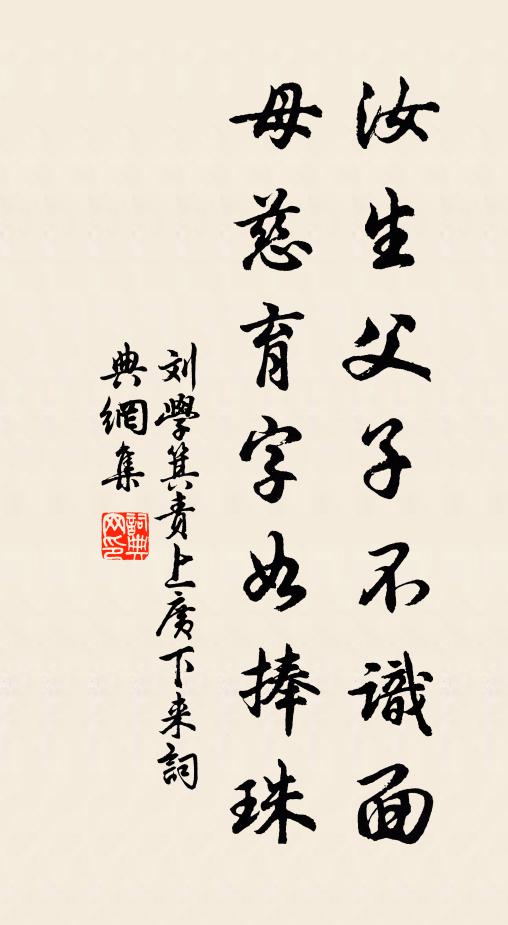 汝生父子不識面
母慈育字如捧珠
刘學箕責上廣下来詞
典網集
詞典網印